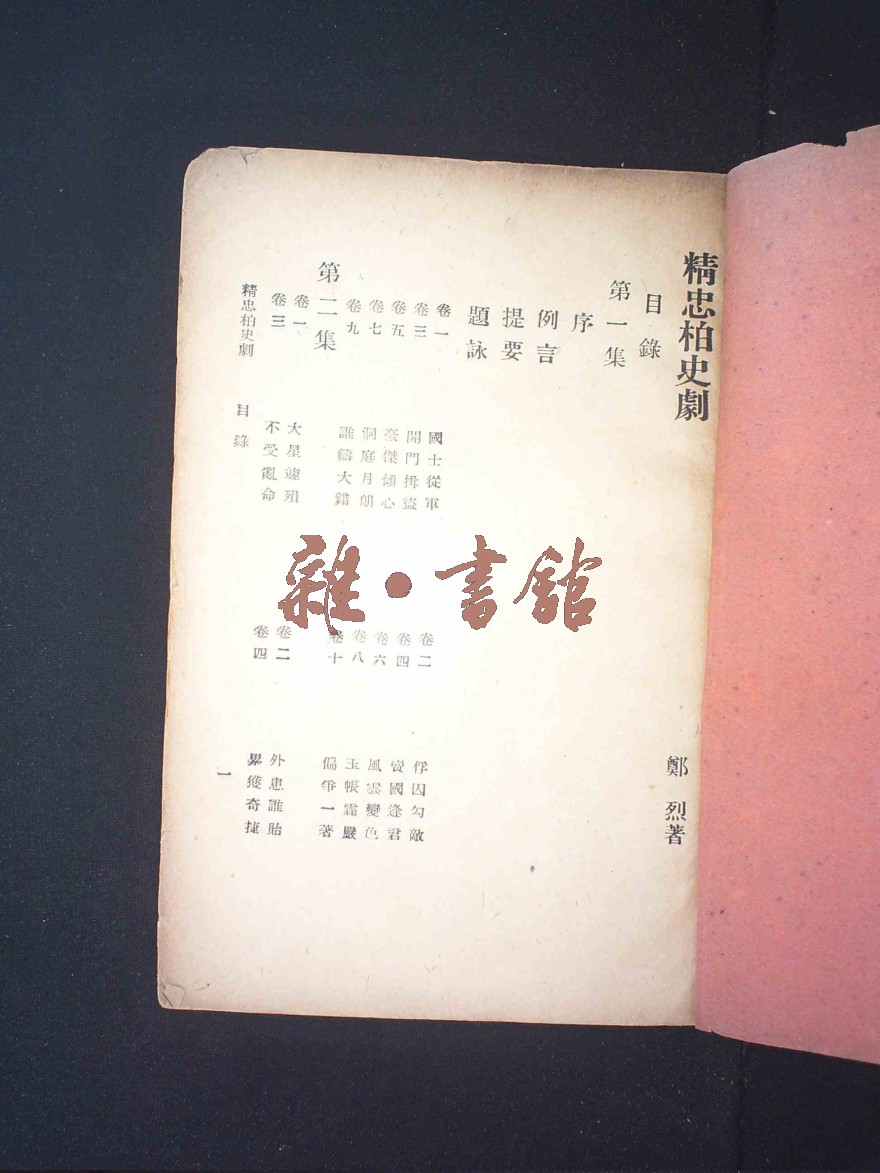 精忠柏史劇
鄭烈著
目錄
第一集
序
例言
提要
題詠
卷一 國士從軍 卷二 俘囚勾敵
卷三 開門揖盜 卷四 賣國逢君
卷五 豪傑傾心 卷六 風雲變色
卷七 洞庭月朗 卷八 玉帳霜嚴
卷九 誰鑄大錯 卷十 偏爭一著
第二集
卷一 大星遽殞 卷二 外患誰貽
卷三 不受亂命 卷四 累獲奇捷
精忠柏史劇 目錄 一
雜·書館